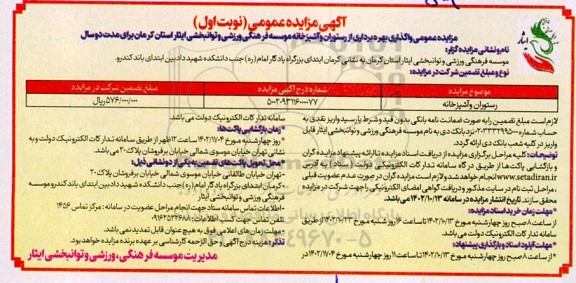 آگهی مزایده عمومی (نوبت اول)
مزایده عمومی واگذاری بهره برداری از رستوران و آشپزخانه موسسه فرهنگی ورزشی و توانبخشی ایثار استان کرمان برای مدت دو سال
نام و نشانی مزایده گزار:
موسسه فرهنگی ورزشی و توانبخشی ایثار استان کرمان به نشانی کرمان ابتدای بزرگراه یادگار امام (ره) جنب دانشکده شهید دادبین ابتدای باند کندرو.
نوع و مبلغ تضمین شرکت در مزایده:
موضوع مزایده
شماره درج آگهی مزایده
مبلغ تضمین شرکت در مزایده
رستوران و آشپزخانه
۵۰۰۲۰۹۳۱۱۶۰۰۰۰۷۷
۵۷۶/۰۰۰/۰۰۰ ریال
لازم است مبلغ تضمین را به صورت ضمانت نامه بانکی بدون قید و شرط یا رسید واریز نقدی به
نزد بانک دی به نام موسسه فرهنگی ورزشی و توانبخشی ایثار قابل
واریز در کلیه شعب بانک دی ارائه گردد.
توضیحات: کلیه مراحل برگزاری مزایده از دریافت اسناد مزایده تا ارائه پیشنهاد مزایده گران
و بازگشایی پاکت ها از طریق درگاه سامانه تدارکات الکترونیکی دولت (ستاد) به آدرس
www.setadiran.ir انجام خواهد شد و لازم است مزایده گران در صورت عدم عضویت قبلی
، مراحل ثبت نام در سایت مذکور و دریافت گواهی امضای الکترونیکی را جهت شرکت در مزایده
محقق سازند. تاریخ انتشار مزایده در سامانه ۱۴۰۲/۱۰/۱۳ می باشد.
*مهلت زمان خرید اسناد مزایده:
از ساعت ۸ صبح روز چهارشنبه مورخ ۱۴۰۲/۱۰/۱۳
سامانه تدارکات الکترونیک دولت می باشد.
*مهلت آپلود اسناد و بارگذاری پیشنهاد:
*از ساعت ۸ صبح روز چهارشنبه مورخ ۱۴۰۲/۱۰/۱۳ تا ساعت ۱۱ روز چهارشنبه مورخ ۱۴۰۲/۱۱/۰۴ در
سامانه تدارکات الکترونیک دولت می باشد.
*زمان بازگشایی پاکت ها:
*روز چهارشنبه مورخ ۱۴۰۲/۱۱/۰۴ ساعت ۱۲ ظهر از طریق سامانه تدارکات الکترونیک دولت و به
نشانی تهران خیابان موسوی شمالی خیابان برفروشان پلاک ۲۰ می باشد.
*محل تحویل پاکت های تضمین به یکی از دو نشانی ذیل:
-تهران خیابان طالقانی خیابان موسوی شمالی خیابان برفروشان پلاک ۲۰
-کرمان ابتدای بزرگراه یادگار امام (ره) جنب دانشکده شهید دادبین ابتدای باند کندرو موسسه
فرهنگی ورزشی و توانبخشی ایثار
*اطلاعات تماس سامانه ستاد جهت انجام مراحل عضویت در سامانه: مرکز تماس ۱۴۵۶
تلفن تماس جهت کسب اطلاعات: ۰۹۱۶۲۵۲۲۶۸۸
*مهلت زمان های اعلامی فوق به هیچ عنوان قابل تمدید نمی باشد.
تذکر: هزینه درج آگهی و حق الزحمه کارشناسی بر عهده برنده مزایده خواهد بود.
مدیریت موسسه فرهنگی، ورزشی و توانبخشی ایثار